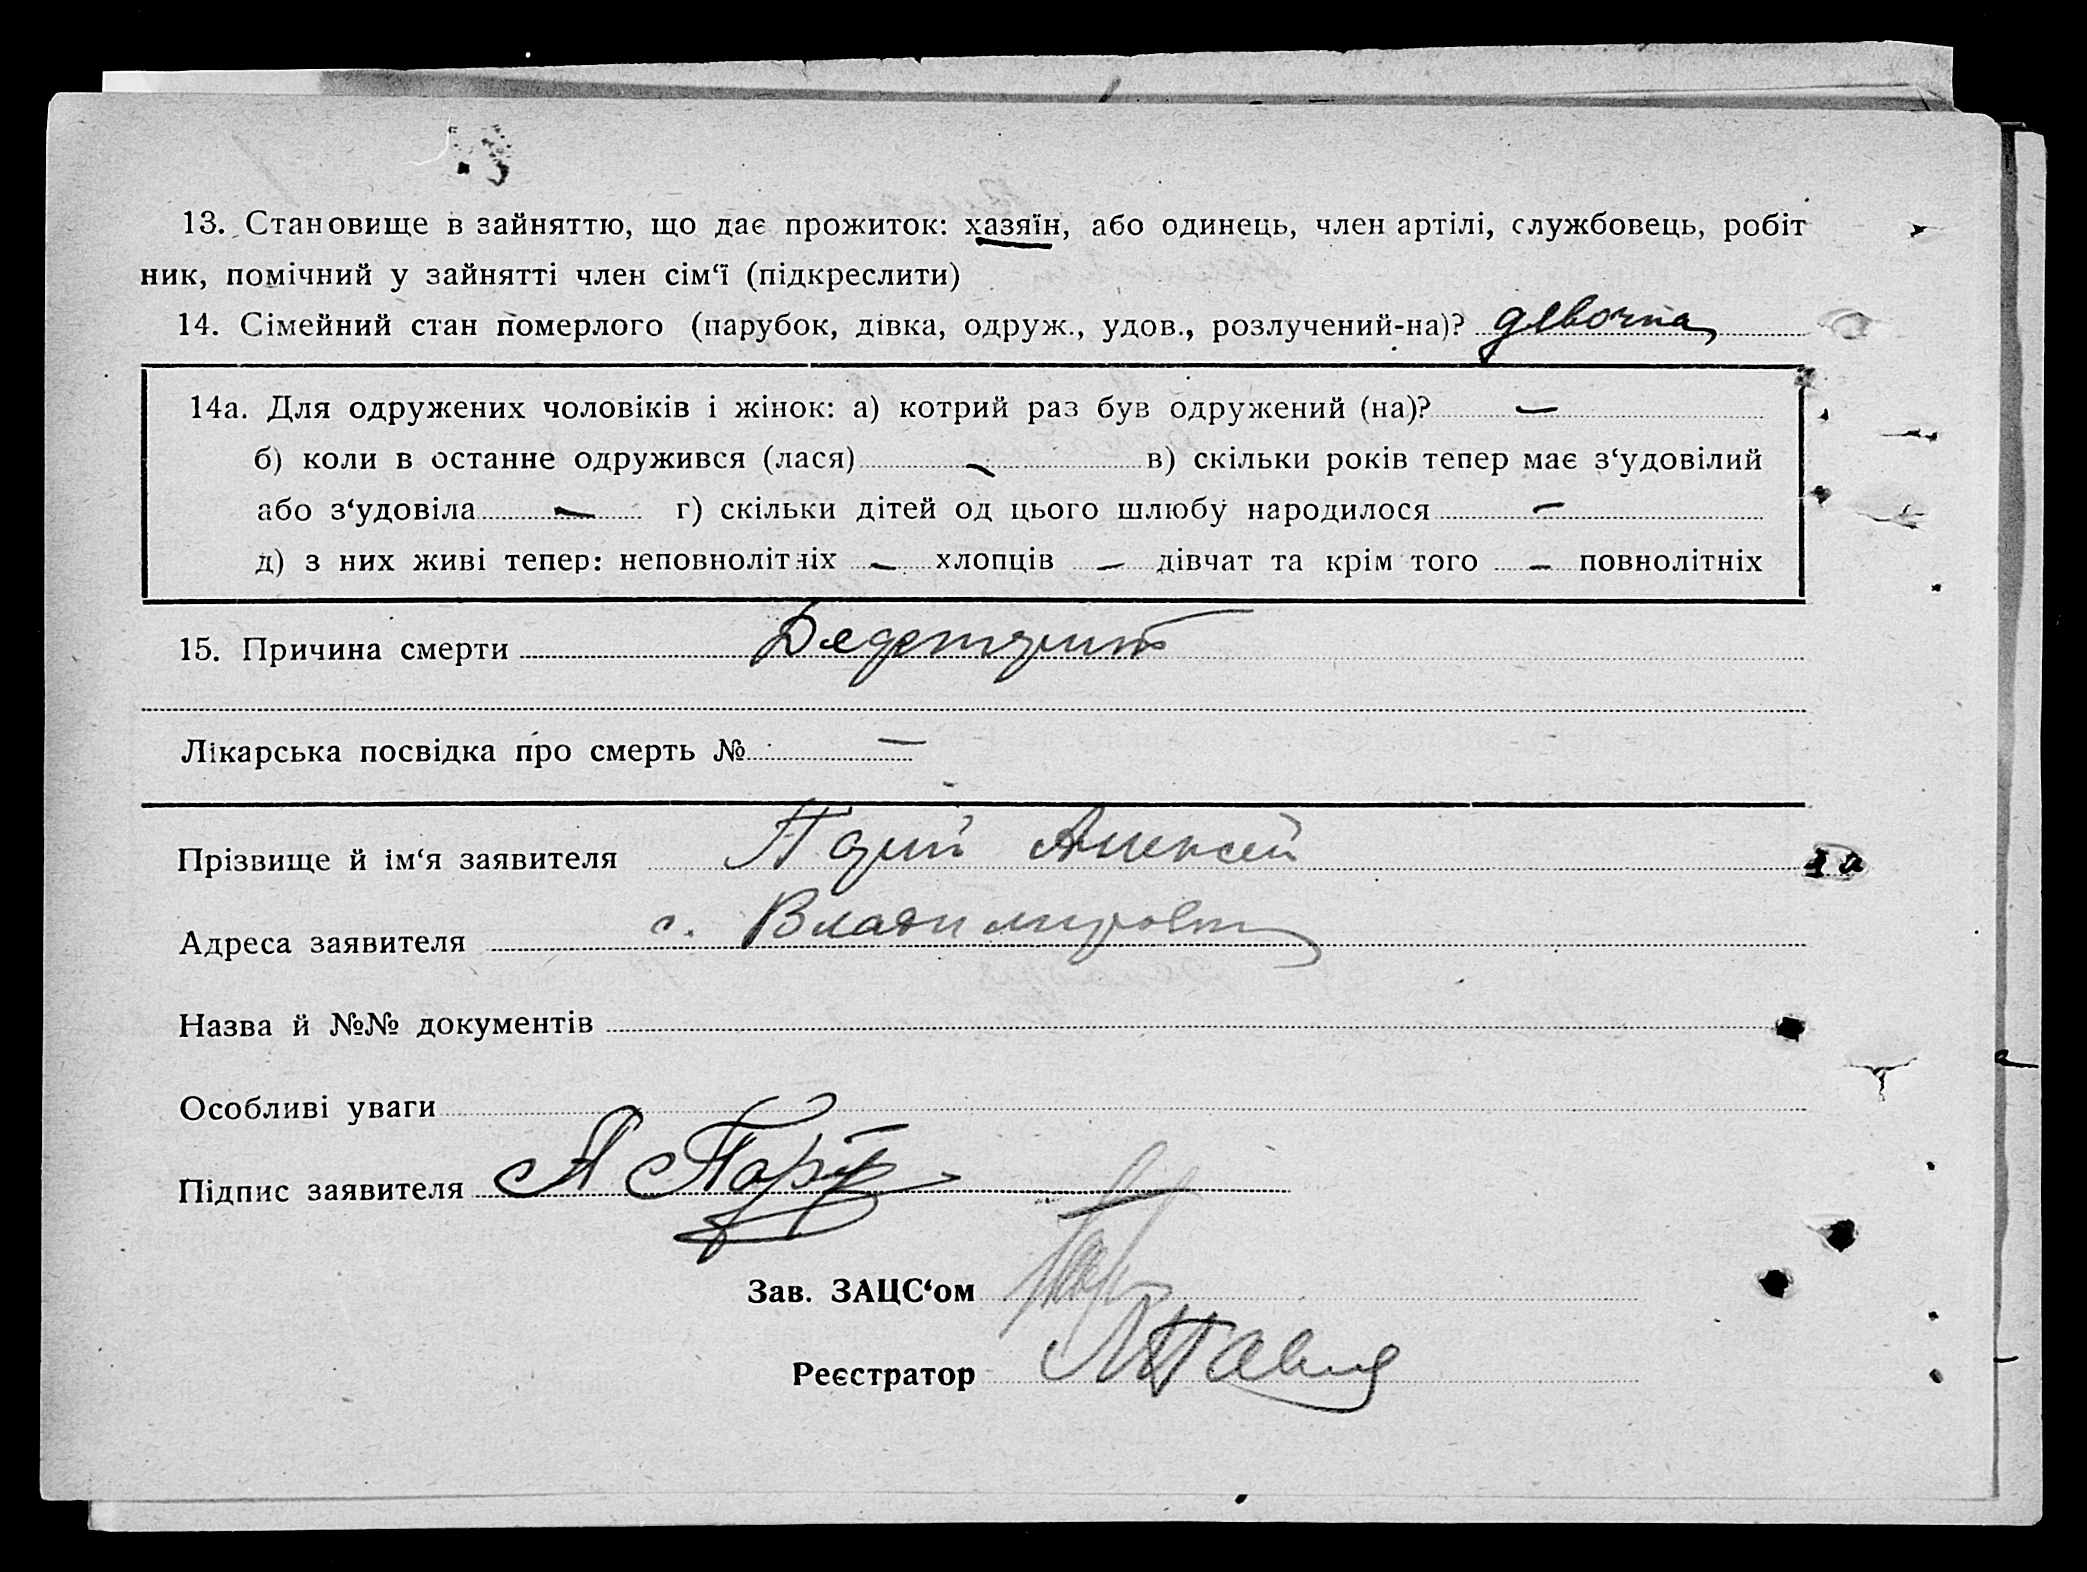 13. Становище в зайняттю, що дає прожиток: хазяїн, або одинець, член артілі, службовець, робіт
ник, помічний у зайнятті член сім‘ї (підкреслити)
14. Сімейний стан померлого (парубок, дівка, одруж., удов., розлучений-на)? девочка
14а. Для одружених чоловіків і жінок: а) котрий раз був одружений (на)? —
б) коли в останнє одружився (лася) — в) скільки років тепер має з‘удовілий
або з‘удовіла — г) скільки дітей од цього шлюбу народилося —
д) з них живі тепер: неповнолітніх — хлопців — дівчат та крім того — повнолітніх
15. Причина смерти
Лікарська посвідка про смерть № —
Прізвище й ім‘я заявителя Алексей
Адреса заявителя с. Владимировка
Назва й №№ документів
Особливі уваги
Підпис заявителя
Зав. ЗАЦС‘ом
Реєстратор